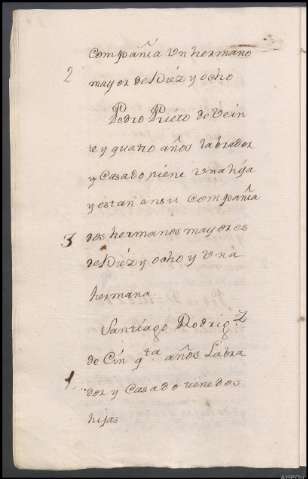 compañia Un hermano
2 mayor de diéz y ocho
Pedro Prieto de Vein
te y quatro años labrador
y Casado tiene una hija
y estan en su compañia
3 dos hermanos mayores
de diéz y ocho y una
hermana
Santiágo Rodrigz
de Cinqta años Labra
1 dor y Casado tiene dos
hijas